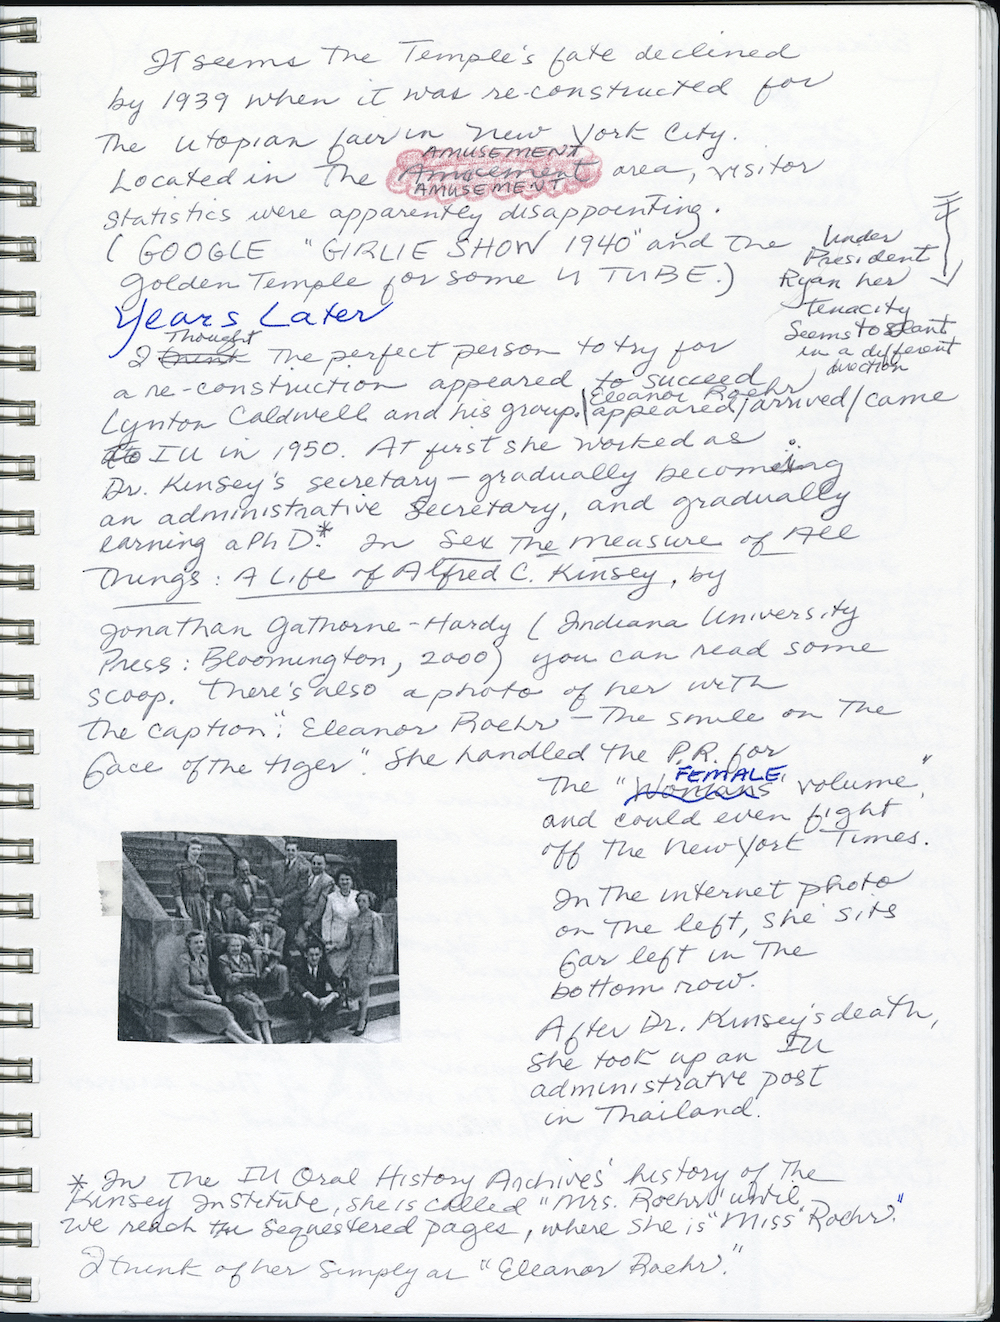 It seems the Temple's fate declined
by 1939 when it was re-constructed for
the utopian fair in New York City.
AMUSEMENT
Located in the Amusement area, visitor
AMUSEMENT
statistics were apparently disappointing.
(GOOGLE "GIRLIE SHOW 1940" and the
Golden Temple for some U TUBE.)
Under
President
Ryan her
tenacity
seems to slant
in a different
direction
Years Later
Thought
I think the perfect person to try for
a re-construction appeared to succeed
Lynton Caldwell and his group. Eleanor Roehr
appeared/arrived/came
to IU in 1950. At first she worked as
Dr. Kinsey's secretary – gradually becoming
an administrative secretary, and gradually
earning a PhD.* In Sex the Measure of All
Things: A Life of Alfred C. Kinsey, by
Jonathan Gathorne-Hardy (Indiana University
Press: Bloomington, 2000) you can read some
scoop. There's also a photo of her with
the caption: "Eleanor Roehr – the smile on the
face of the tiger". She handled the P.R. for
FEMALE
the "Womans" volume",
and could even fight
off the New York Times.
In the internet photo
on the left, she sits
far left in the
bottom row.
After Dr. Kinsey's death,
she took up an IU
administratve post
in Thailand.
* In the IU Oral History Archives' history of the
Kinsey Institute, she is called "Mrs. Roehr" until
we reach the sequestered pages, where she is "Miss Roehr."
I think of her simply as "Eleanor Roehr."